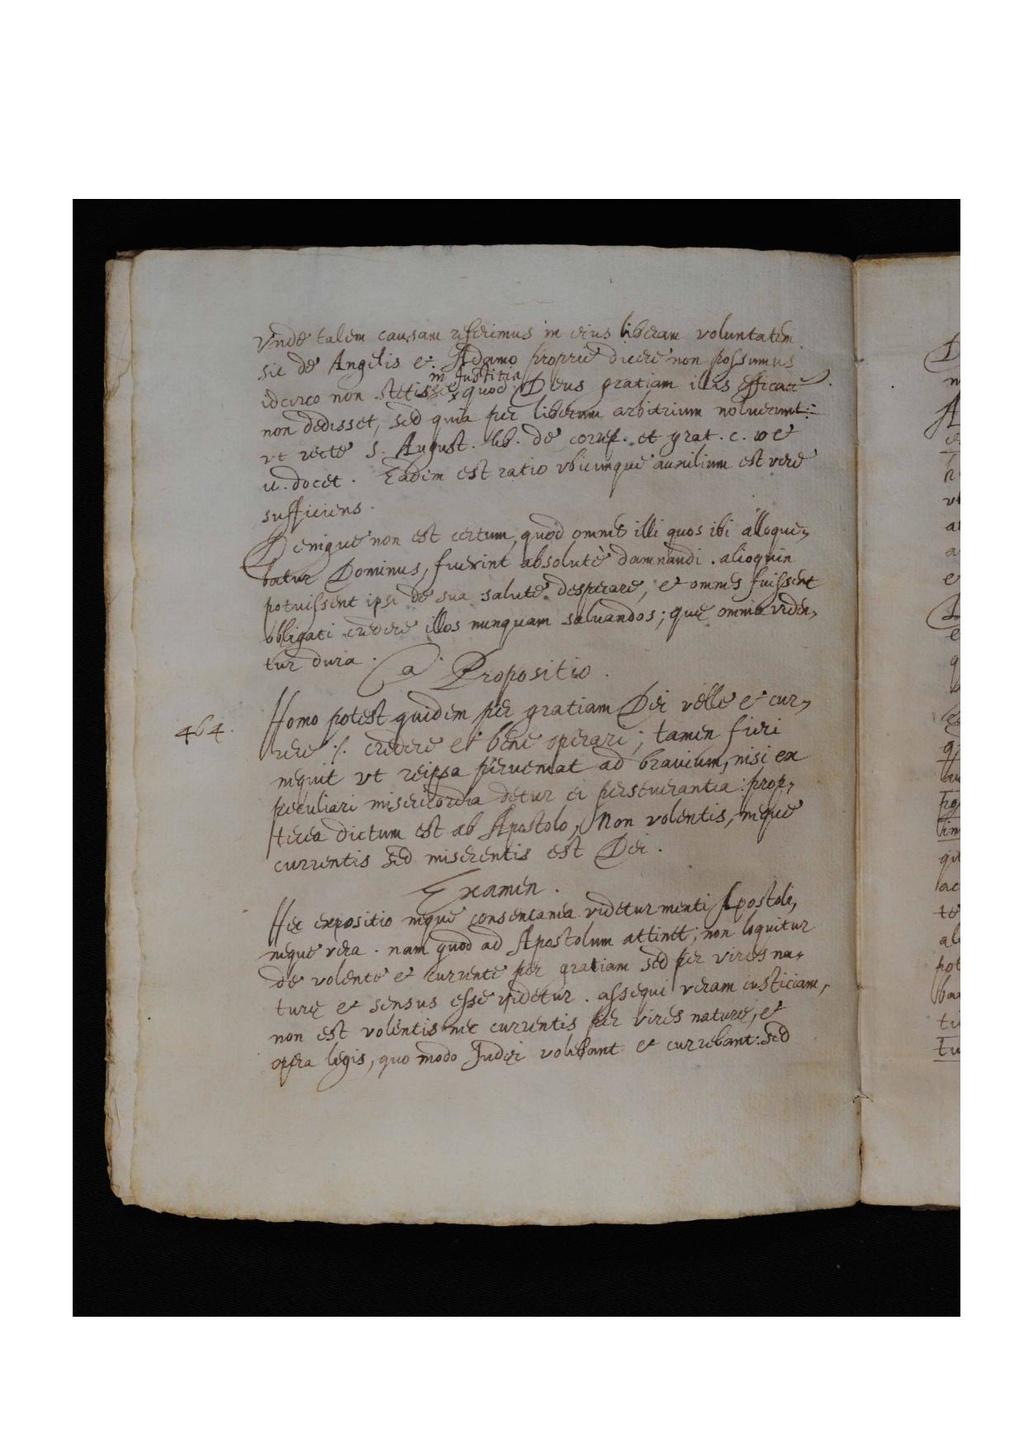 Vnde talem causam referimus in eius liberam voluntatem
sic de Angelis et Adamo proprie dicere non possumus
in Justitia
idcirco non stetisse quod Deus gratiam illis efficacem
non dedisset, sed quia per liberum arbitrium noluerunt:
vt recte S. August. lib. de corrept. et grat. c. 10 et
11. docet. Eadem est ratio vbicumque auxilium est vere
sufficiens.
Denique non est certum, quod omnes illi quos ibi alloque,
batur Dominus, fuerint absolutè damnandi. alioquin
potuissent ipsi de sua salute desperare, et omnes fuissent
obligati credere illos nunquam saluandos; quę omnia viden,
tur dura.
a Propositio.
464.
Homo potest quidem per gratiam Dei velle et cur,
rere .i. credere et bene operari; tamen fieri
nequit vt reipsa perueniat ad brauium, nisi ex
peculiari misericordia detur ei perseuerantia: prop,
terea dictum est ab Apostolo, Non volentis, neque
currentis sed miserentis est Dei.
Examen.
Hęc expositio neque consentanea videtur menti Apostoli,
neque vera. nam quod ad Apostolum attinet; non loquitur
de volente et currente per gratiam sed per vires na,
turę et sensus esse videtur. assequi veram iusticiam,
non est volentis nec currentis per vires naturę, et
opera legis, quo modo Judęi volebant et currebant: sed